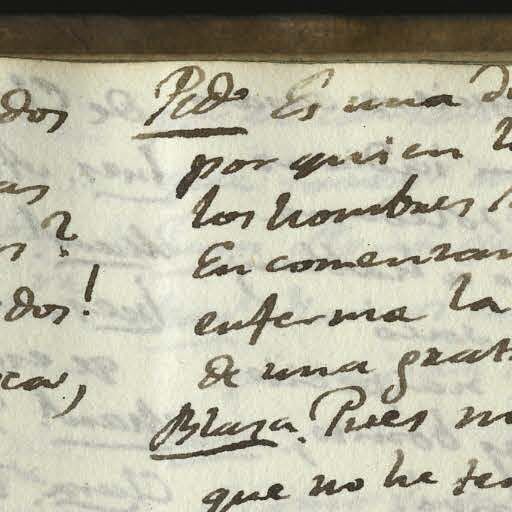 dos
as
s?
dos!
car,
Pedo Es una
por quien
los hombres
En comenzan
enferma la
de una grat
Blasa. Pues
que no he ten